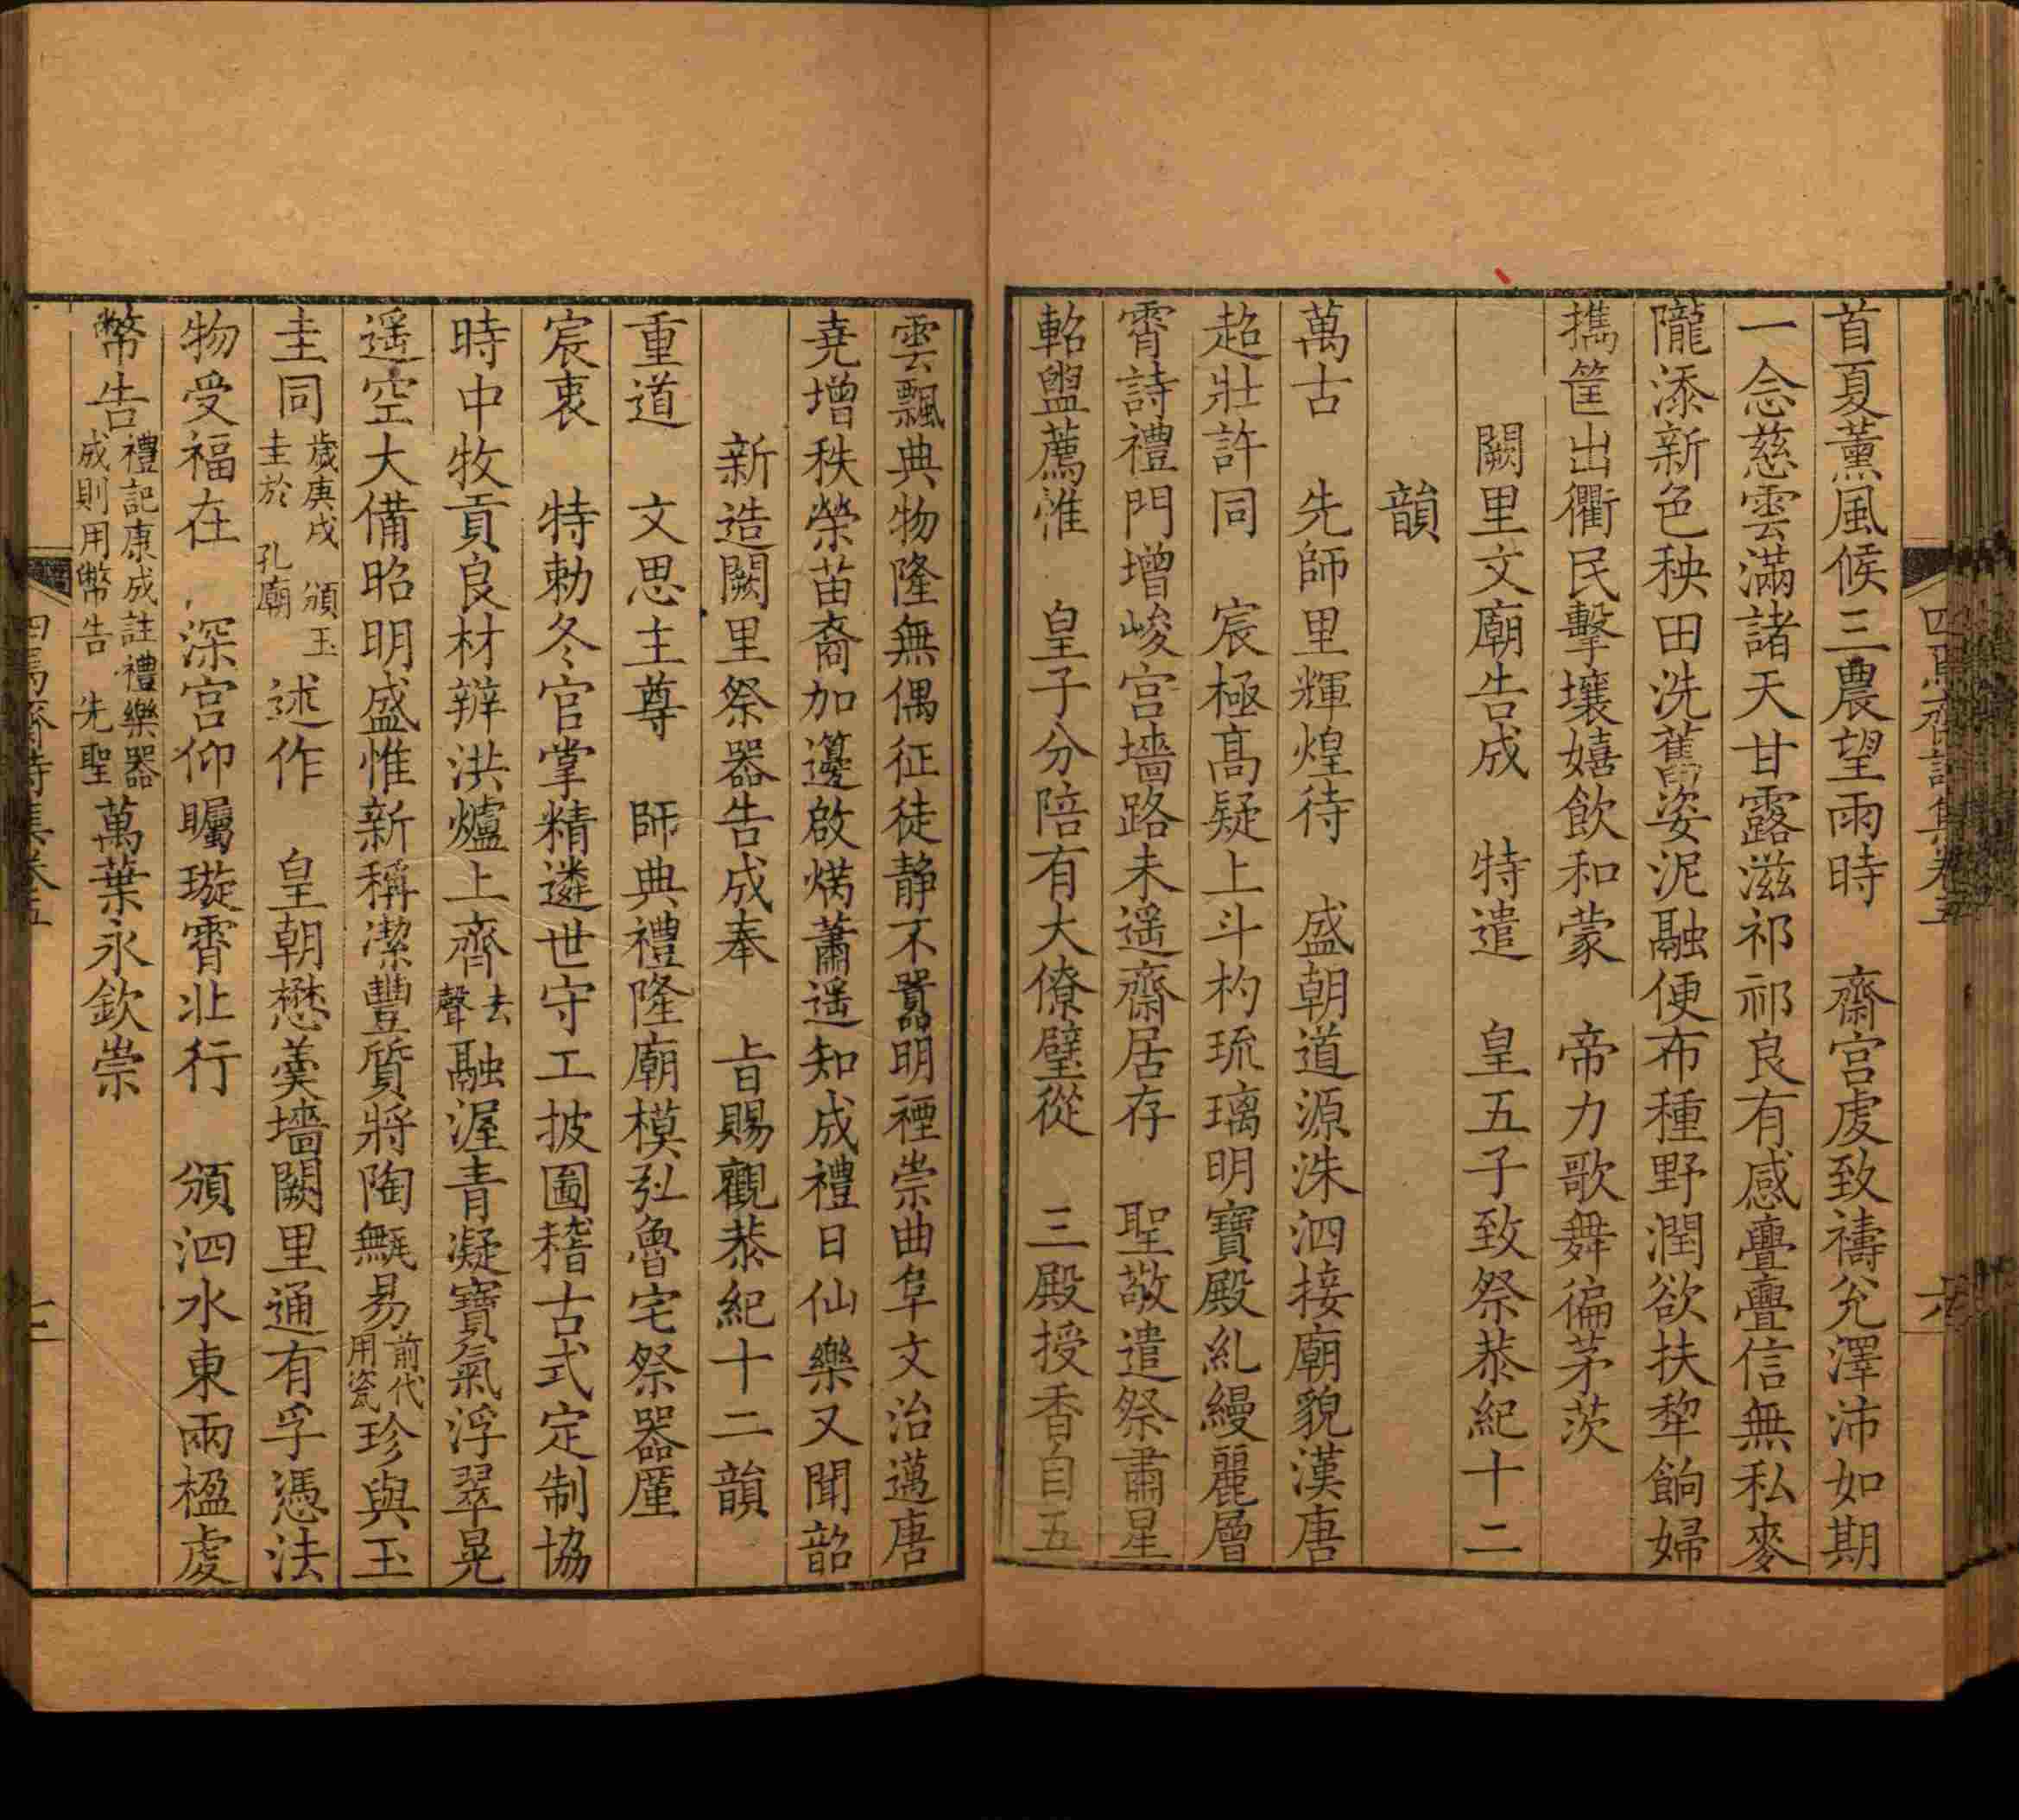 首夏薰風候三農望雨時　齋宮虔致禱兊澤沛如期
一念慈雲滿諸天甘露滋祁祁良有感疊疊信無私麥
隴添新色秧田洗舊姿泥融便布種野潤欲扶犂餉婦
攜筐出衢民擊壤嬉飲和蒙　帝力歌舞徧茅茨
闕里文廟告成　特遣　皇五子致祭恭紀十二
韻
萬古　先師里輝煌待　盛朝道源洙泗接廟貌漢唐
超壯許同　宸極高疑上斗杓琉璃明寶殿糺縵麗層
霄詩禮門增峻宮墻路未遥齋居存　聖敬遣祭肅星
軺盥薦惟　皇子分陪有大僚璧從　三殿授香自五
雲飄典物隆無偶征徒静不囂明禋崇曲阜文治邁唐
堯增秩榮苗裔加籩啟㷟蕭遥知成禮日仙樂又聞韶
新造闕里祭器告成奉　旨賜觀恭紀十二韻
重道　文思主尊　師典禮隆廟模弘魯宅祭器厪
宸衷　特勅冬官掌精遴世守工披圖稽古式定制協
時中牧貢良材辦洪爐上齊去聲融渥青凝寶氣浮翠晃
遥空大備昭明盛惟新稱潔豐質將陶甒易前代用瓷珍與玉
圭同歲庚戌　頒玉圭於　孔廟述作　皇朝懋羹墻闕里通有孚憑法
物受福在　深宮仰矚璇霄北行　頒泗水東兩楹虔
幣告禮記康成註禮樂器成則用幣告　先聖萬葉永欽崇
四焉齋詩集卷五
六